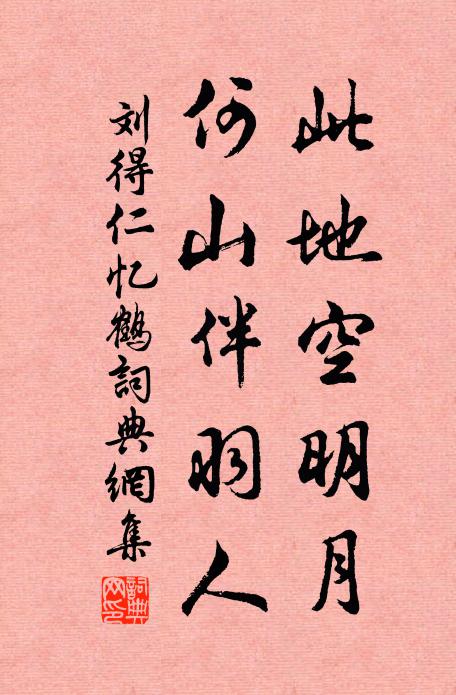 此地空明月
何山伴羽人
刘得仁忆鹤詞典網集
詞典网印